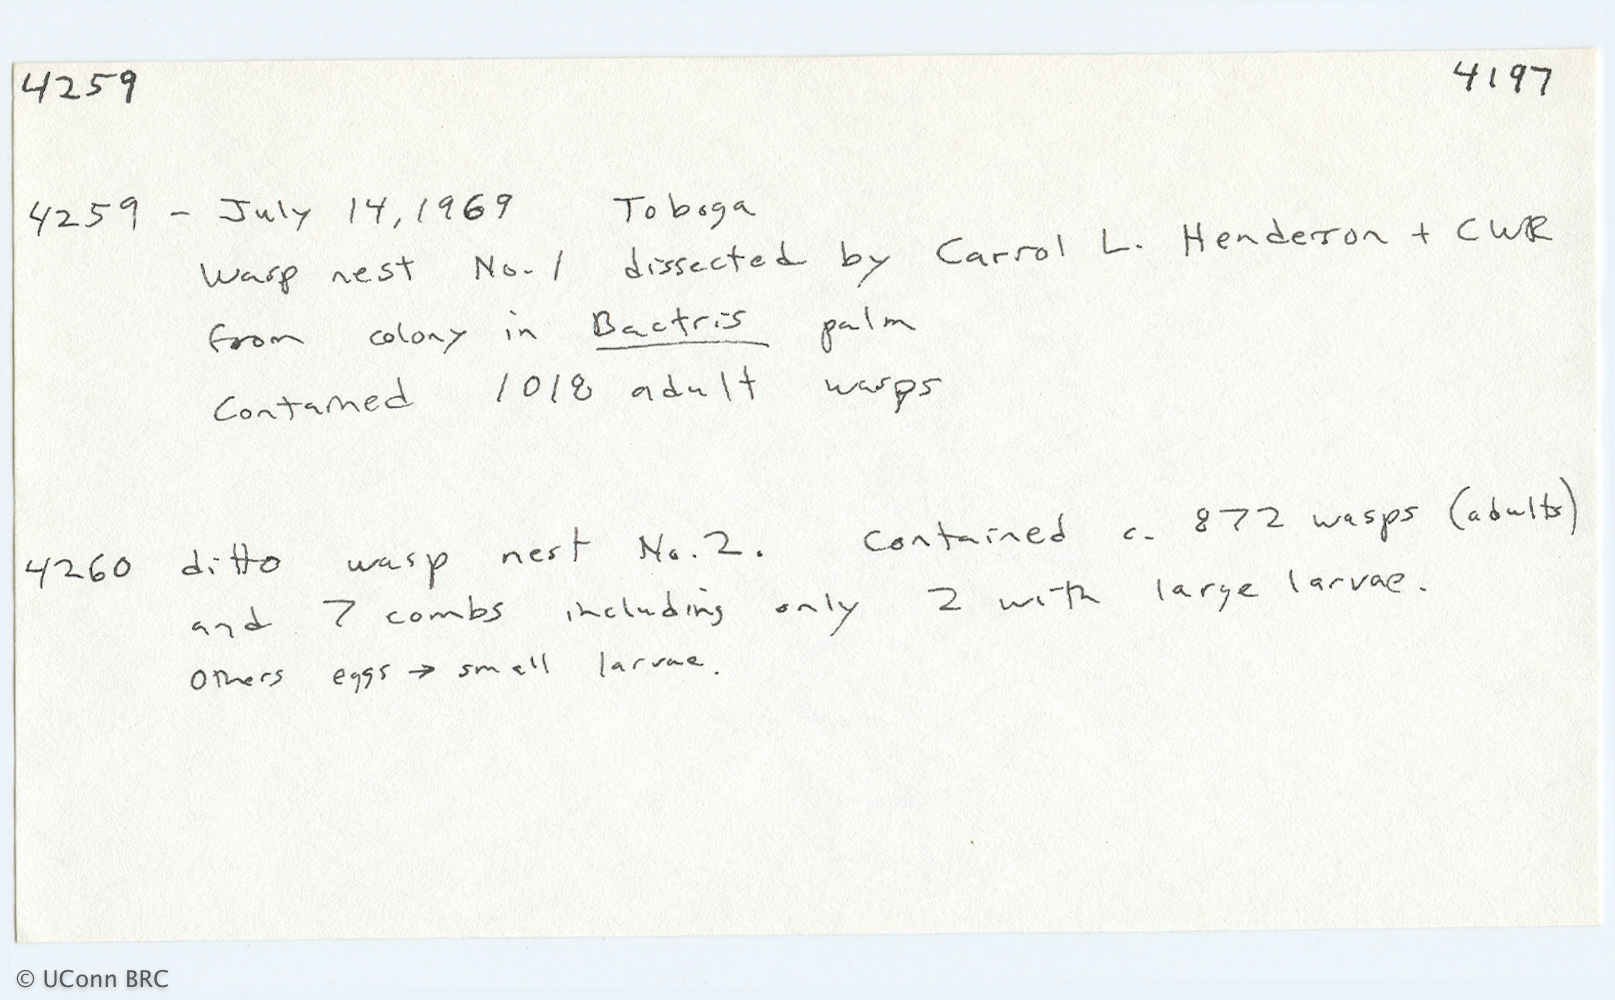 4259 4197
4259 - July 14, 1969 Toboga
Wasp nest No. 1 dissected by Carrol L. Henderson + CWR
from colony in Bactris palm
Contained 1018 adult wasps
4260 ditto wasp nest No. 2. Contained c. 872 wasps (adults)
and 7 combs including only 2 with large larvae.
Others eggs → small larvae.
© UConn BRC